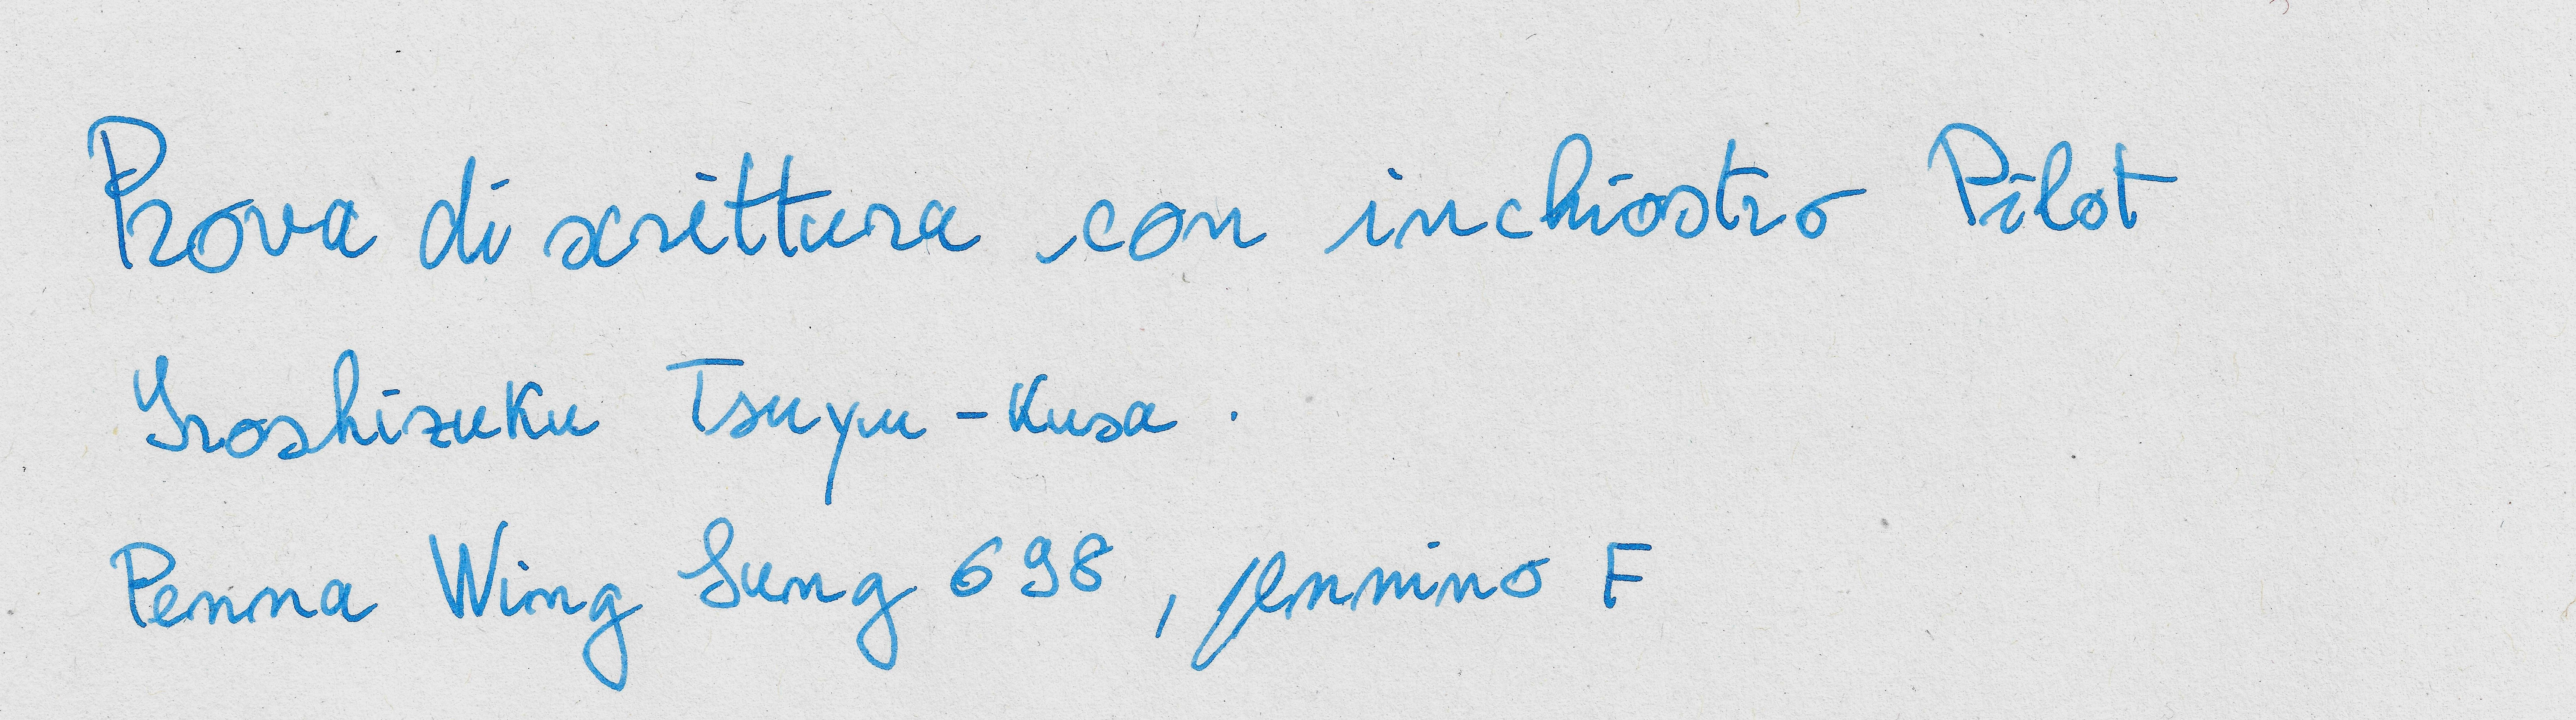 Prova di scrittura con inchiostro Pilot
Iroshizuku Tsuyu-Kusa.
Penna Wing Sung 698, pennino F